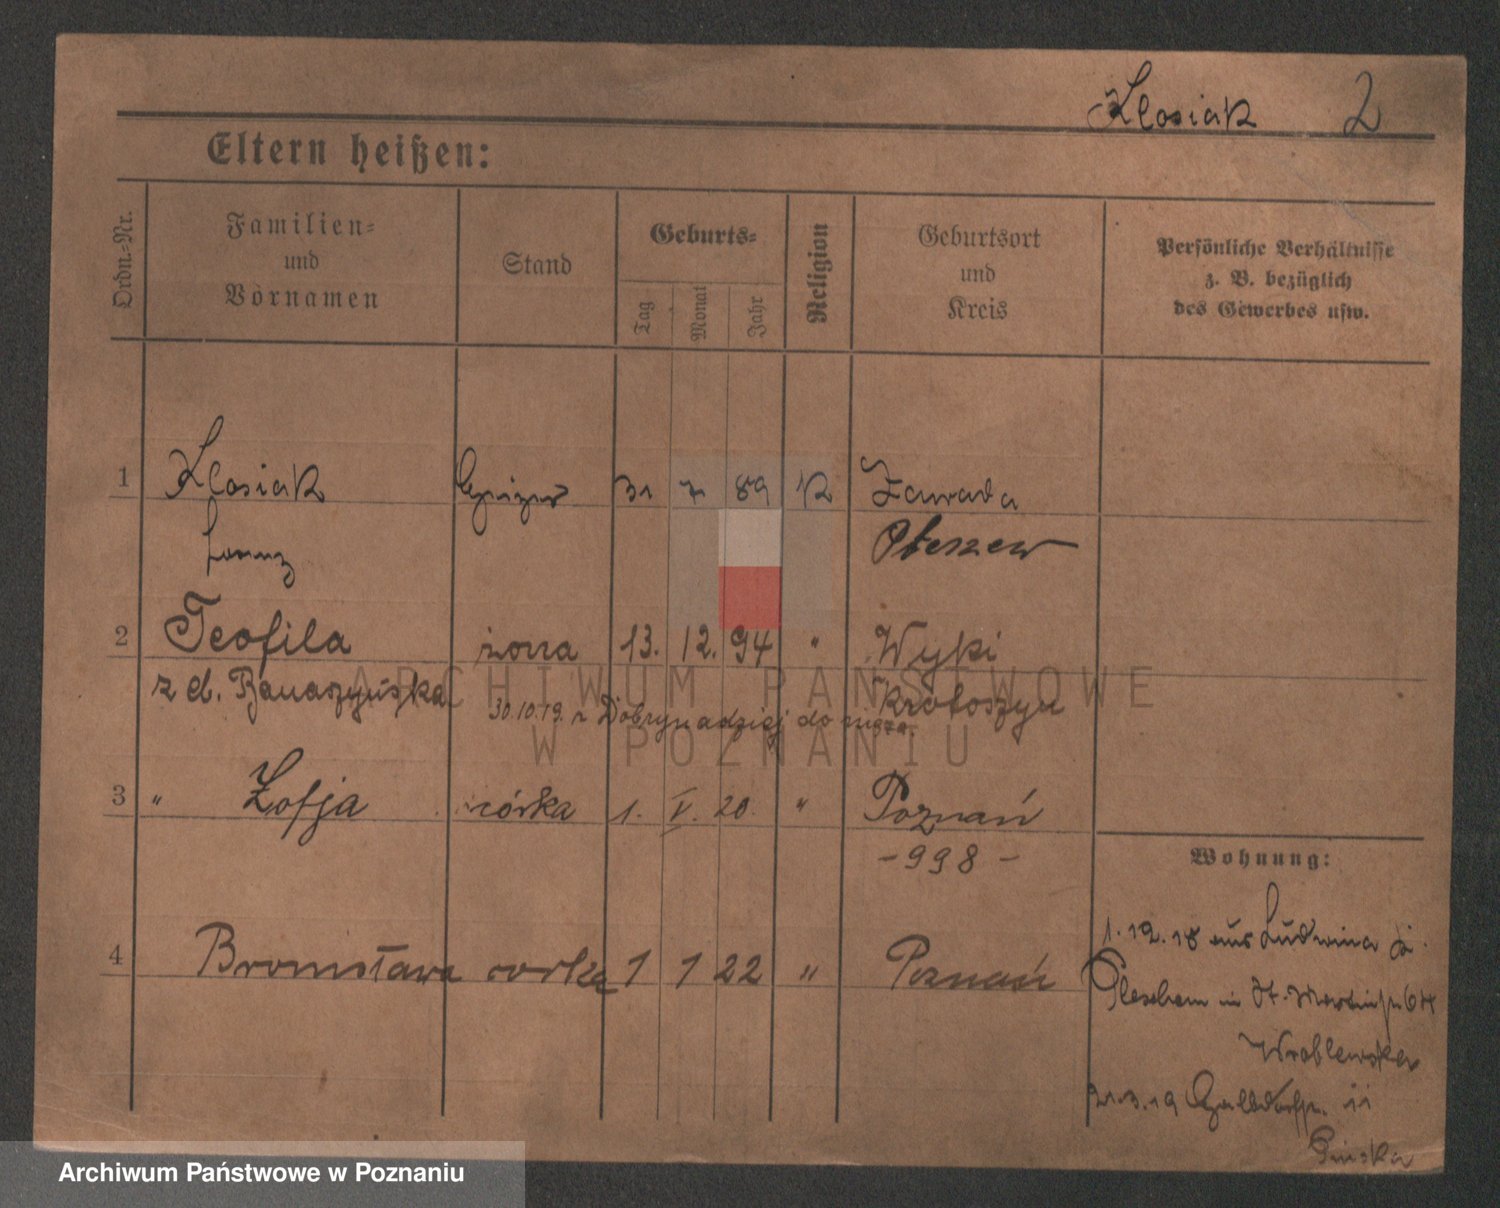 Klosiak 2
Eltern heißen:
Ordn.-Nr.
Familien-
und
Vornamen
Stand
Geburts-
Tag
Monat
Jahr
Religion
Geburtsort
und
Kreis
Persönliche Verhältnisse
z. B. bezüglich
des Gewerbes usw.
1 Klosiak 31 7 89 K Zawada
2 Teofila żona 13. 12. 94 " Wyki
z d. Banaszyńska Krotoszyn
30.10.19. z Dobrzyca dzisiaj do męża.
3 " Zofja córka 1. V. 20. " Poznań
- 998 -
4 Bronisława corka 1 1 22 " Poznań
Wohnung:
1.12.18 aus Ludwina
Pleschen in St. Martinstr 64
Wroblewska
31.3.19 11
ARCHIWUM PAŃSTWOWE
W POZNANIU
Archiwum Państwowe w Poznaniu